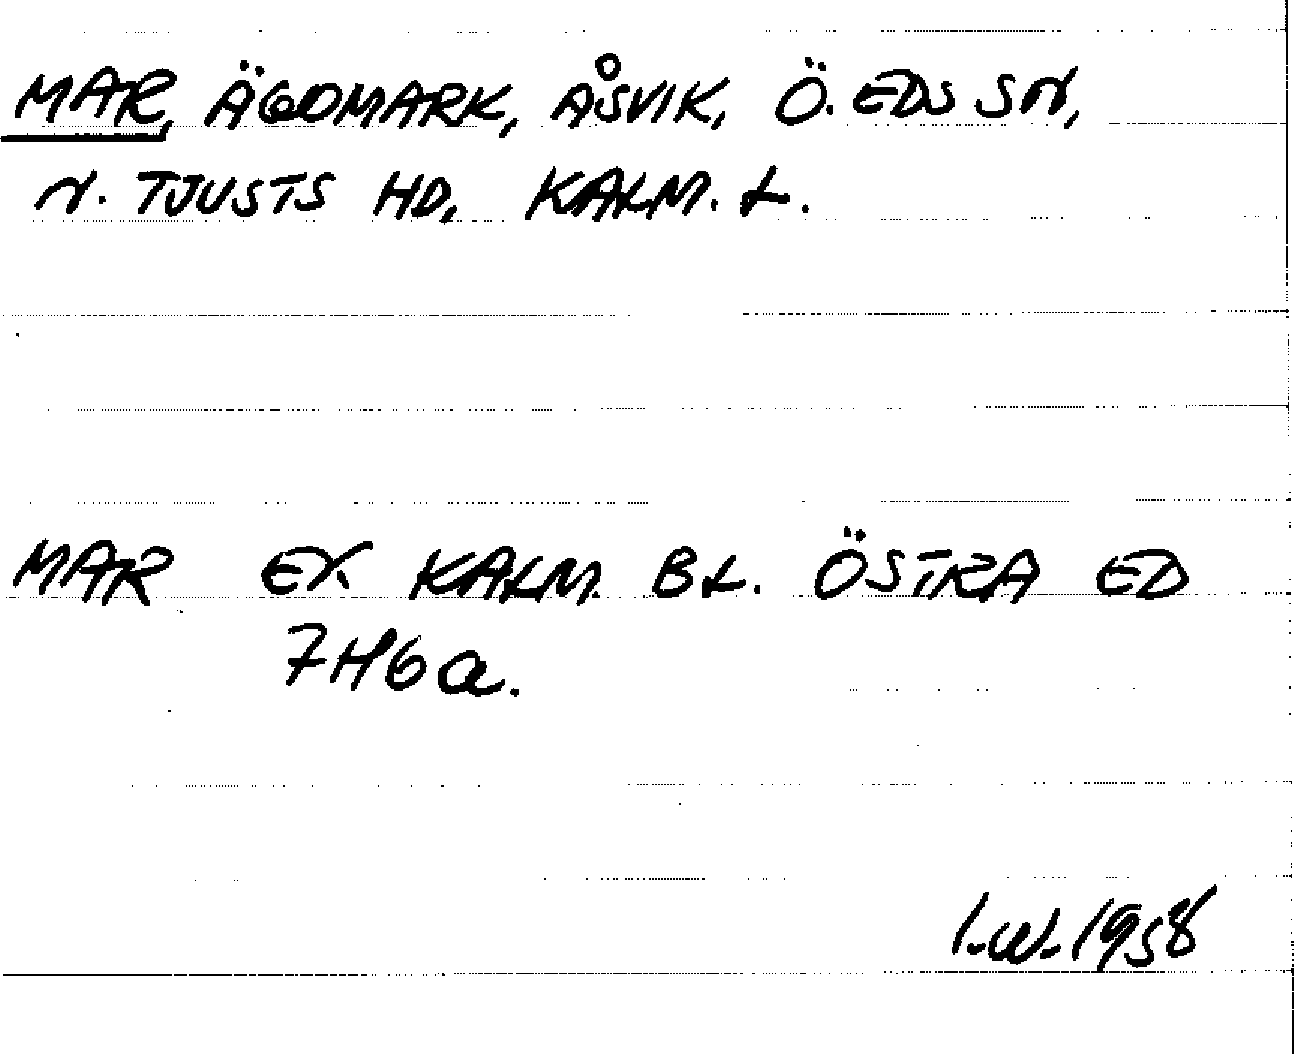 MAR, ÄGOMARK, ÅSVIK, Ö. EDS SN,
N. TJUSTS HD, KALM. L.
MAR EK. KALM. BL. ÖSTRA ED
7H6a.
I.W. 1958